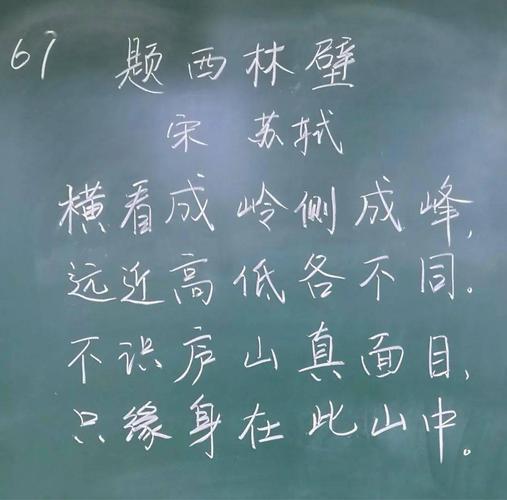 67 题西林壁
宋 苏轼
横看成岭侧成峰,
远近高低各不同。
不识庐山真面目,
只缘身在此山中。